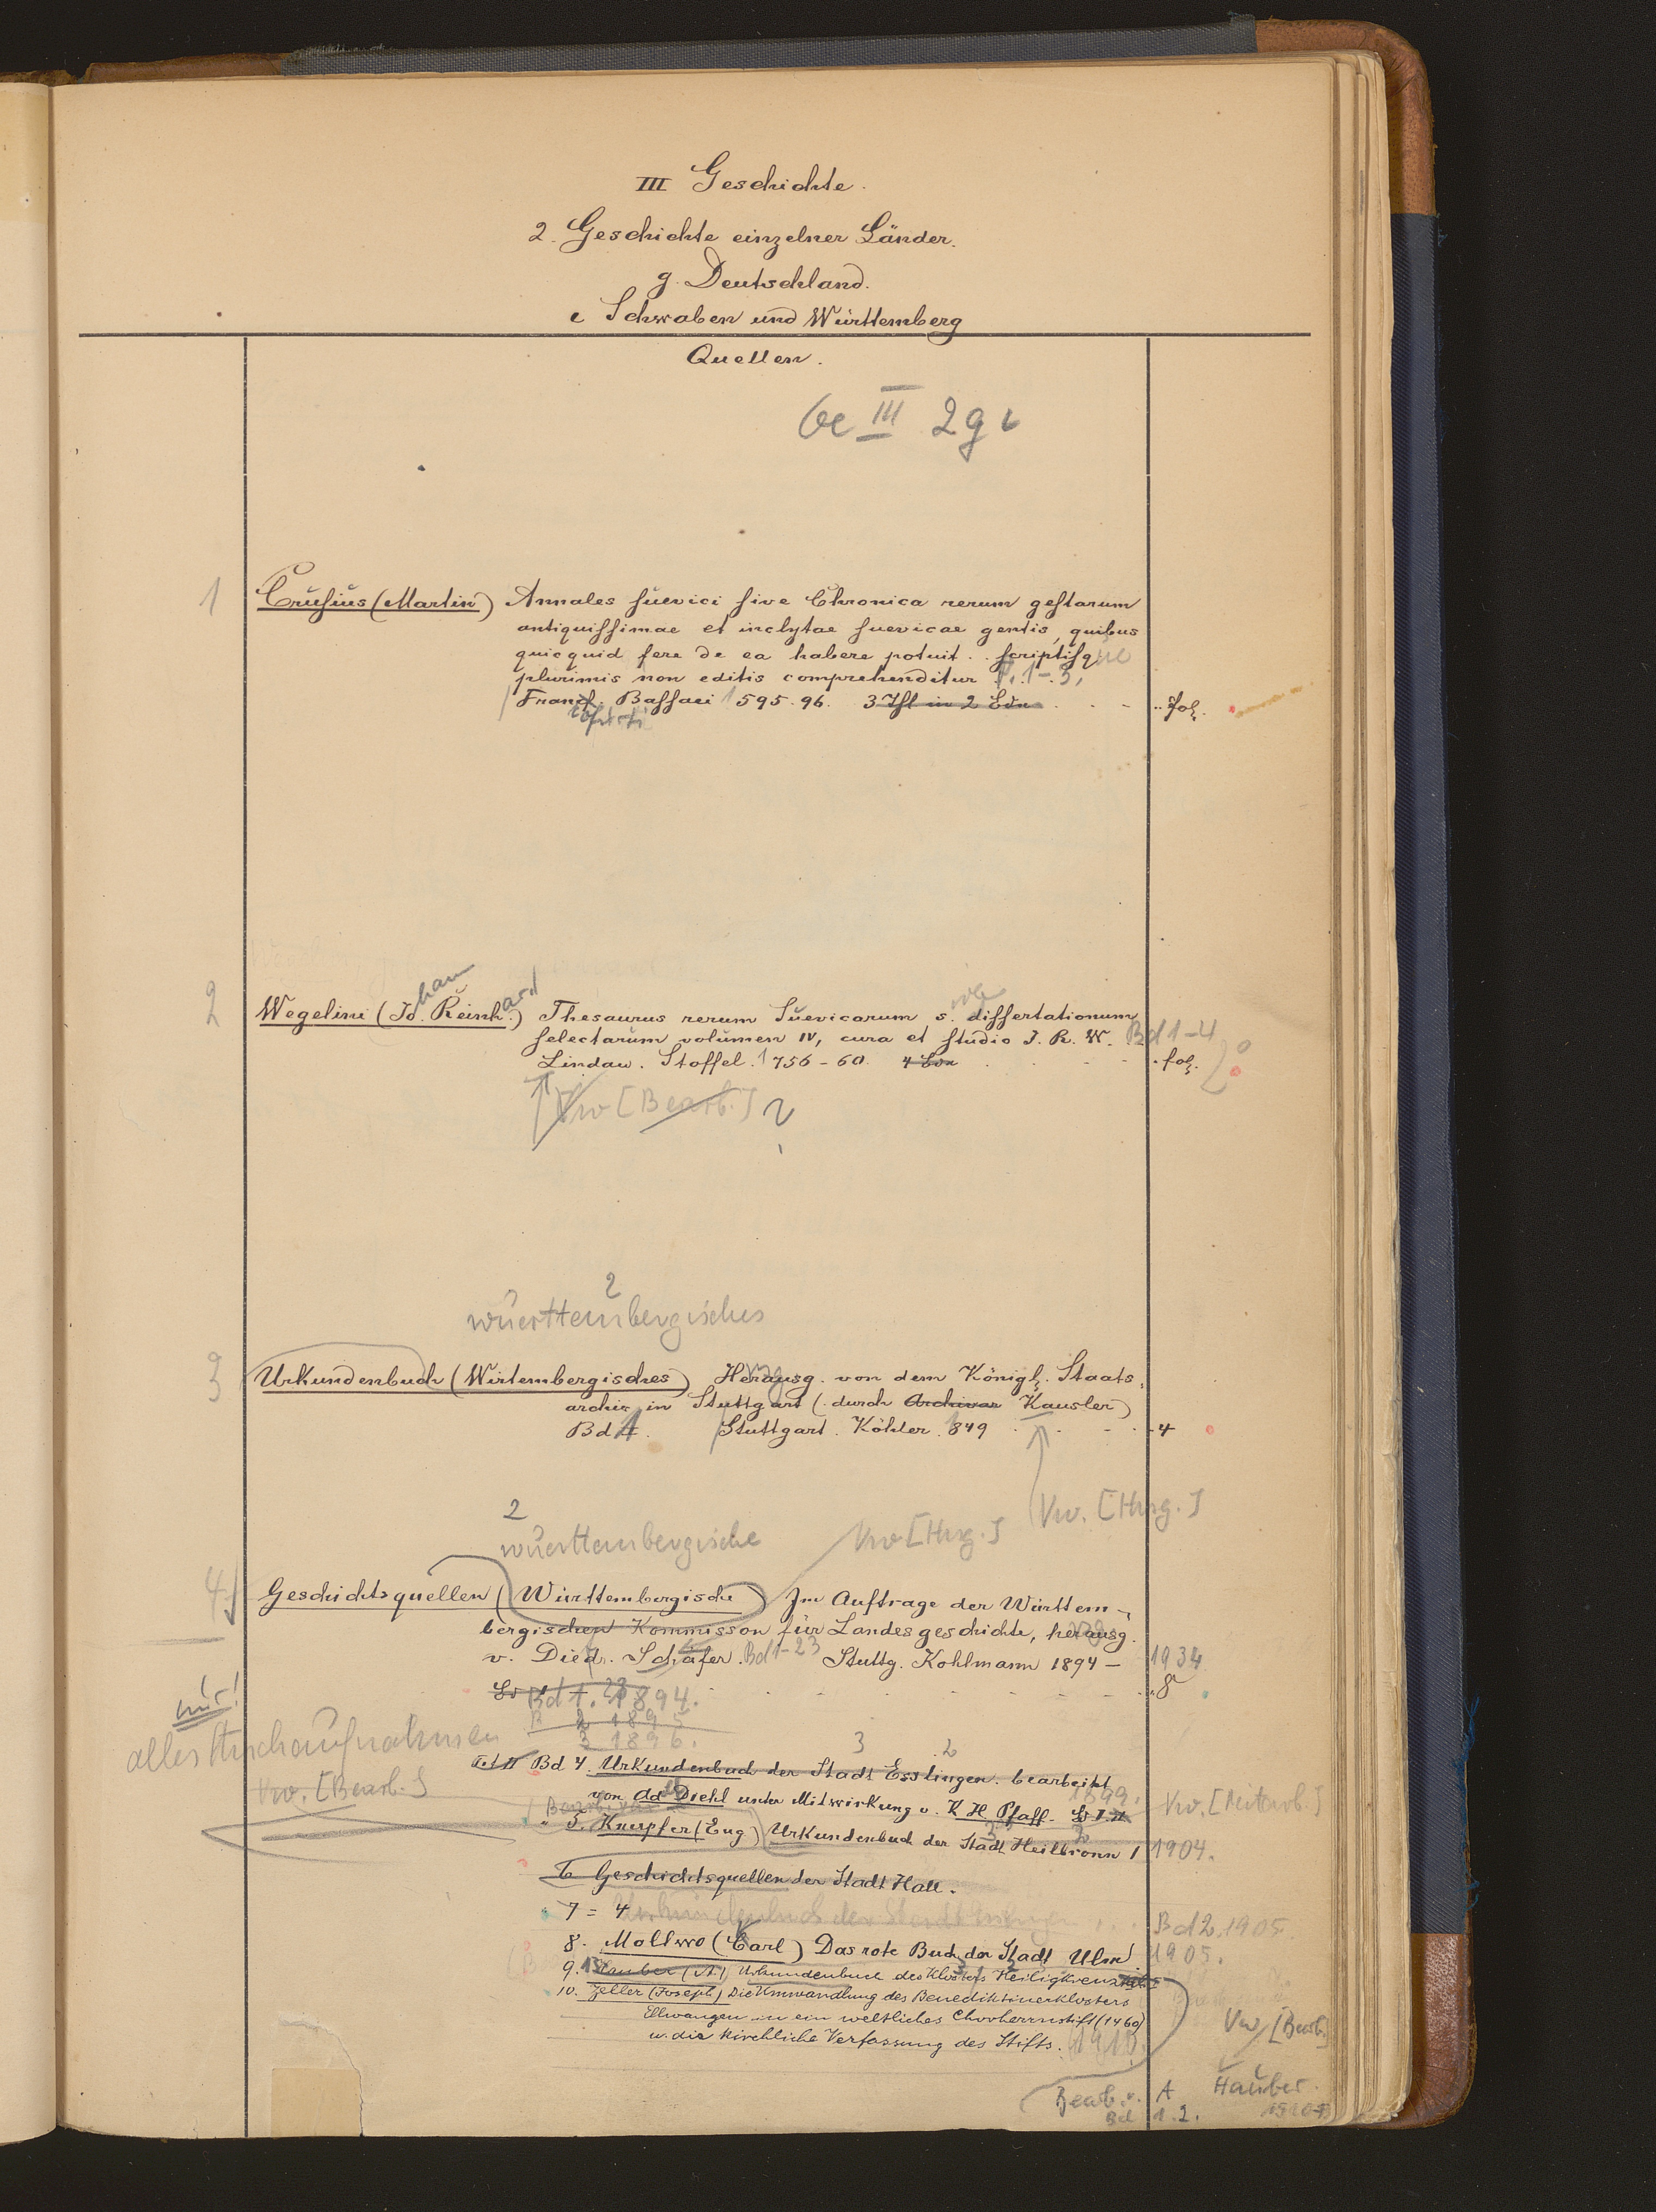 III Geschichte.
2. Geschichte einzelner Länder.
g. Deutschland.
Schwaben und Württemberg
Quellen.
Ge III 2g
1 Crusius (Martin) Annales suevici sive Chronica rerum gestarum
antiquissimae et inclytae suevicae gentis, quibus
quicquid fere de ea habere potuit . . scriptisque
plurimis non editis comprehenditur T. 1-3,
Francf. Bassaei 1595.96. 3 Thl in 2 Bdn fol.
2 Wegelini (Johan Reinhard) Thesaurus rerum Suevicarum s. dissertationum
selectarum volumen IV, cura et studio J. R. W. Bd 1-4
Lindau. Stoffel. 1756-60. 4 Bde fol. 2°
Vw [Bearb.]
2
württembergisches
3 Urkundenbuch (Wirtembergisches) Herausg. von dem Königl. Staats-
archiv in Stuttgart (durch Archivar Kausler)
Bd 1. Stuttgart. Köhler. 1849 4
Vw. [Hrsg.]
2
württembergische Vw [Hrsg.]
4 Geschichtsquellen (Württembergische) Im Auftrage der Württem-
bergischen Kommisson für Landesgeschichte, herausg.
v. Diedr. Schäfer. Bd 1-23 Stuttg. Kohlmann 1894- 1934
Bd 1. 1894. 8
2 1895
3 1896.
nur!
alles Stichaufnahmen
Vw. [Bearb.]
3 2
Bd 4. Urkundenbuch der Stadt Esslingen. bearbeitet
1899.
von Ad Diehl unter Mitwirkung v. K H Pfaff. Bd I. II Vw. [Mitarb.]
" 5. Knupfer (Eug) Urkundenbuch der Stadt Heilbronn 1 1904.
6 Geschichtsquellen der Stadt Hall.
" 7 = 4 Urkundenbuch der Stadt Esslingen Bd 2, 1905.
8. Mollwo (Carl) Das rote Buch der Stadt Ulm 1905.
9. Hauber (A.) Urkundenbuch des Klosters Heiligkreuztal
10. Zeller (Joseph) Die Umwandlung des Benediktinerklosters
Ellwangen in ein weltliches Chorherrnstift (1460)
u. die kirchliche Verfassung des Stifts. 1910.
Vw [Bearb.]
Bearb. v. A Hauber.
Bd 1.2.